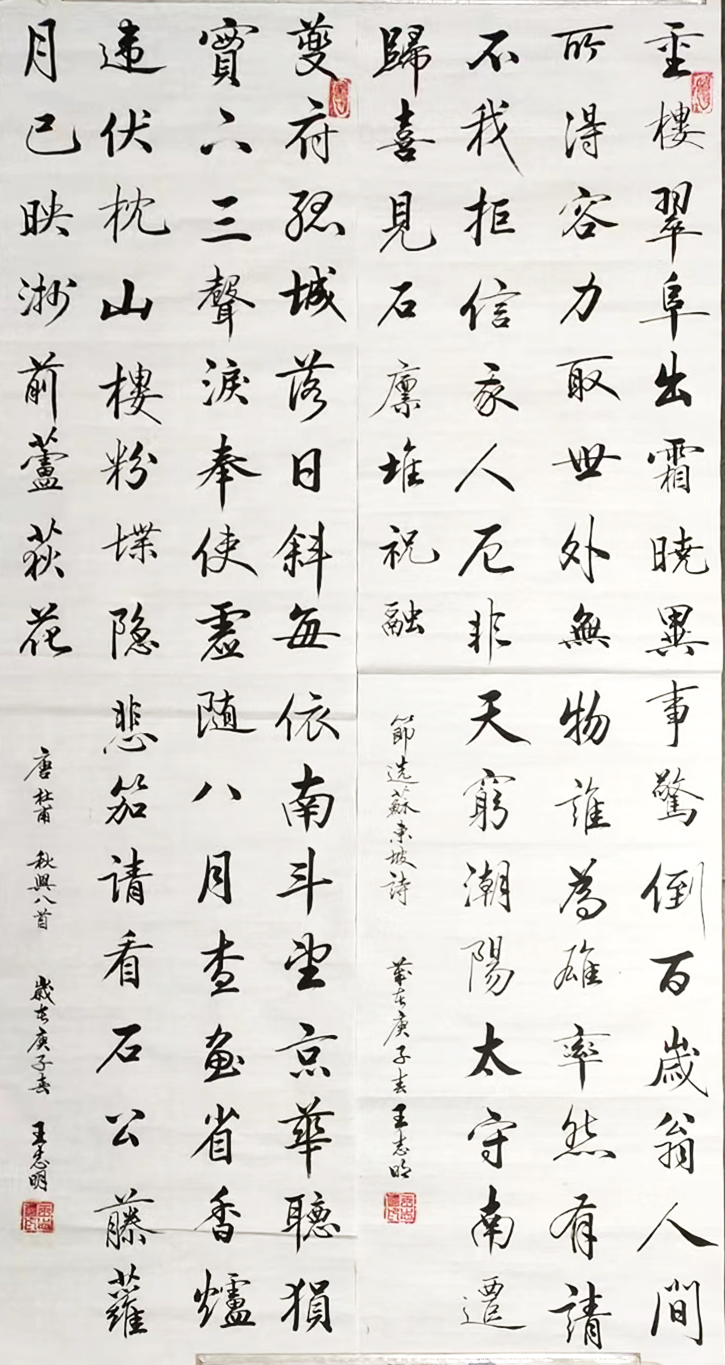 重樓翠阜出霜曉異事驚倒百歲翁人間
所得容力取世外無物誰為雄率然有請
不我拒信我人厄非天窮潮陽太守南遷
歸喜見石廩堆祝融
節選蘇東坡詩 歲在庚子春王志明
夔府孤城落日斜每依南斗望京華聽猿
實下三聲淚奉使虛随八月查畫省香爐
违伏枕山樓粉堞隐悲笳請看石公藤蘿
月已映洲前蘆荻花
唐杜甫 秋興八首 歲在庚子春 王志明